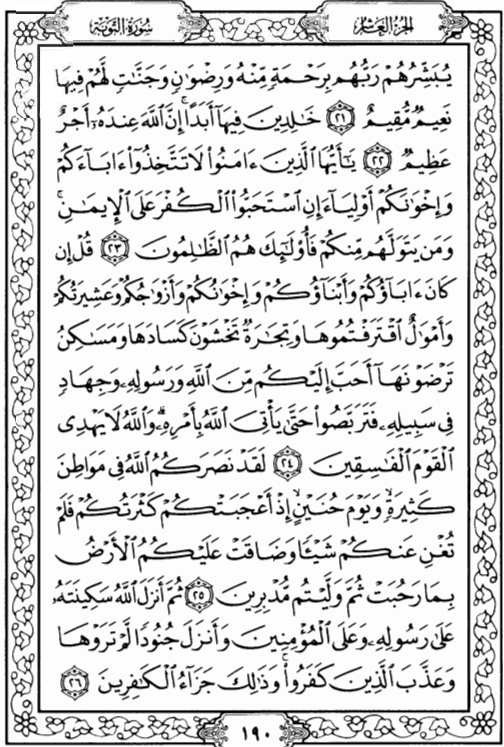 سُورَةُ التَّوْبَةِ
الجُزْءُ العَاشِرُ
يُبَشِّرُهُمْ رَبُّهُم بِرَحْمَةٍ مِّنْهُ وَرِضْوَٰنٍ وَجَنَّٰتٍ لَّهُمْ فِيهَا
نَعِيمٌ مُّقِيمٌ ٢١ خَٰلِدِينَ فِيهَآ أَبَدًا ۚ إِنَّ اللَّهَ عِندَهُۥٓ أَجْرٌ
عَظِيمٌ ٢٢ يَٰٓأَيُّهَا الَّذِينَ ءَامَنُوا۟ لَا تَتَّخِذُوٓا۟ ءَابَآءَكُمْ
وَإِخْوَٰنَكُمْ أَوْلِيَآءَ إِنِ اسْتَحَبُّوا۟ الْكُفْرَ عَلَى الْإِيمَٰنِ ۚ
وَمَن يَتَوَلَّهُم مِّنكُمْ فَأُو۟لَٰٓئِكَ هُمُ الظَّٰلِمُونَ ٢٣ قُلْ إِن
كَانَ ءَابَآؤُكُمْ وَأَبْنَآؤُكُمْ وَإِخْوَٰنُكُمْ وَأَزْوَٰجُكُمْ وَعَشِيرَتُكُمْ
وَأَمْوَٰلٌ اقْتَرَفْتُمُوهَا وَتِجَٰرَةٌ تَخْشَوْنَ كَسَادَهَا وَمَسَٰكِنُ
تَرْضَوْنَهَآ أَحَبَّ إِلَيْكُم مِّنَ اللَّهِ وَرَسُولِهِۦ وَجِهَادٍ
فِى سَبِيلِهِۦ فَتَرَبَّصُوا۟ حَتَّىٰ يَأْتِىَ اللَّهُ بِأَمْرِهِۦ ۗ وَاللَّهُ لَا يَهْدِى
الْقَوْمَ الْفَٰسِقِينَ ٢٤ لَقَدْ نَصَرَكُمُ اللَّهُ فِى مَوَاطِنَ
كَثِيرَةٍ ۙ وَيَوْمَ حُنَيْنٍ ۙ إِذْ أَعْجَبَتْكُمْ كَثْرَتُكُمْ فَلَمْ
تُغْنِ عَنكُمْ شَيْـًٔا وَضَاقَتْ عَلَيْكُمُ الْأَرْضُ
بِمَا رَحُبَتْ ثُمَّ وَلَّيْتُم مُّدْبِرِينَ ٢٥ ثُمَّ أَنزَلَ اللَّهُ سَكِينَتَهُۥ
عَلَىٰ رَسُولِهِۦ وَعَلَى الْمُؤْمِنِينَ وَأَنزَلَ جُنُودًا لَّمْ تَرَوْهَا
وَعَذَّبَ الَّذِينَ كَفَرُوا۟ ۚ وَذَٰلِكَ جَزَآءُ الْكَٰفِرِينَ ٢٦
١٩٠